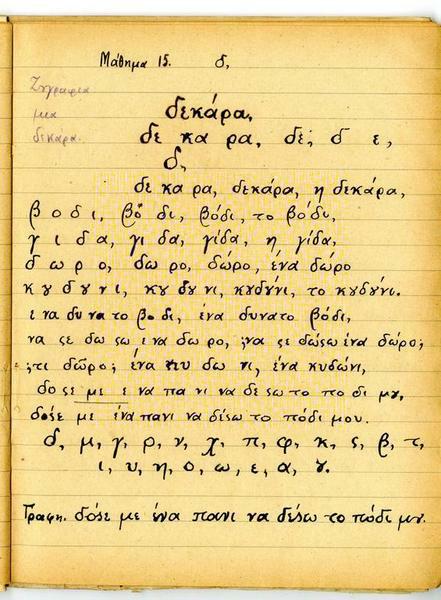 Μάθημα 15. δ,
Ζυγραφια
μια
δεκάρα.
δεκάρα,
δε κα ρα, δε; δ ε,
δ,
δε κα ρα, δεκάρα, η δεκάρα,
β ο δ ι, βο δι, βόδι, το βόδι,
γ ι δ α, γι δα, γίδα, η γίδα,
δ ω ρ ο, δω ρο, δώρο, ένα δώρο
κ υ δ υ ν ι, κυ δυ νι, κυδύνι, το κυδύνι.
ε να δυ να το βο δι, ένα δυνατο βόδι,
να ςε δω ςω ε να δω ρο, να ςε δώςω ένα δώρο;
τι δῶρο; ένα κυ δω νι, ένα κυδώνι,
δο ςε με ε να πα νι να δε ςω το πο δι μυ,
δόςε με ένα πανι να δέςω το πόδι μου.
δ, μ, γ, ρ, ν, χ, π, φ, κ, ς, β, τ,
ι, υ, η, ο, ω, ε, α, ȣ.
Γραφη. δόςε με ένα πανι να δέςω το πόδι μȣ.